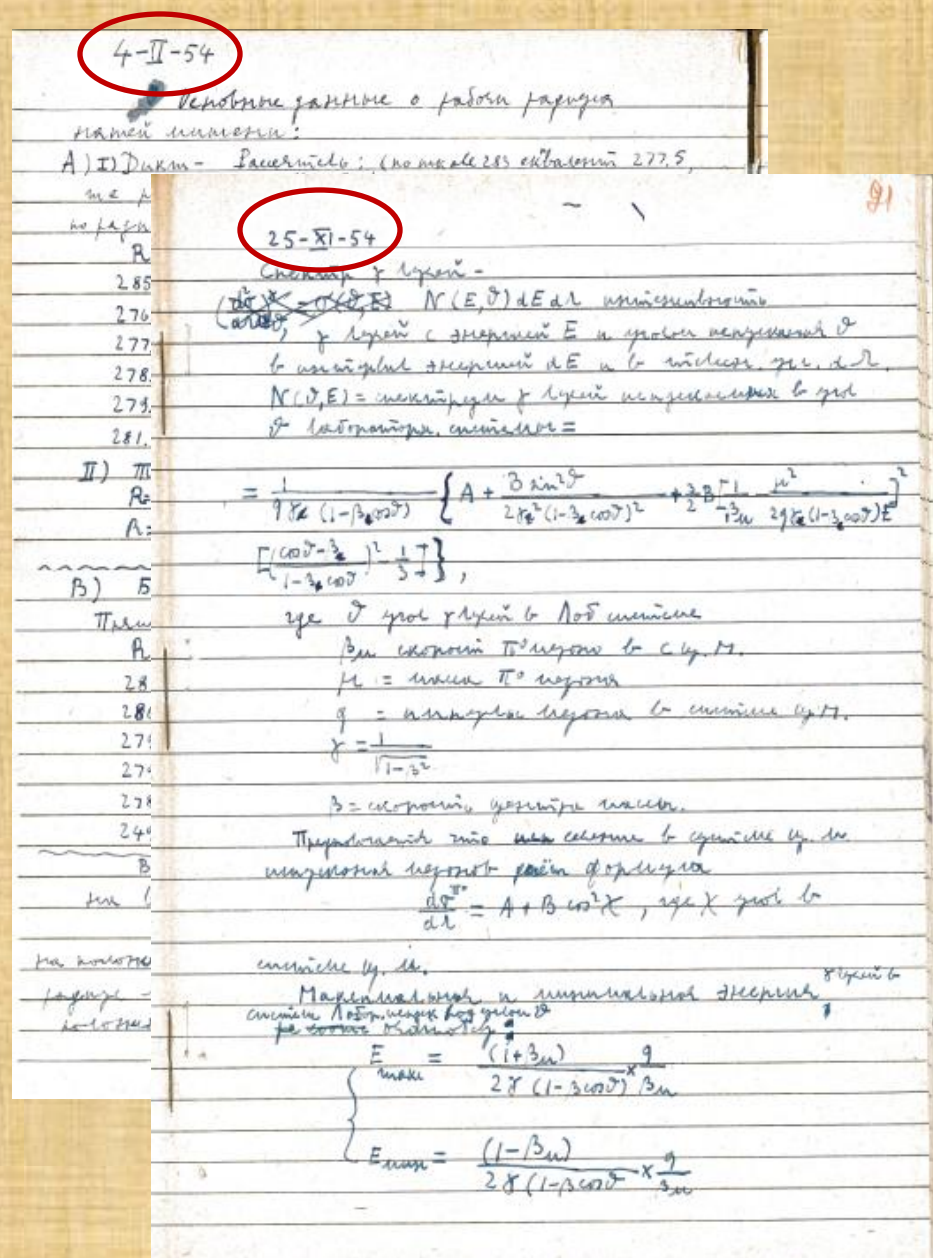 4-II-54
Основные данные о работе радиуса
нашей мишени:
A) I) Дикт- Рассеятель: (по шкале 283 эквивалент 277,5,
же р
по ради
R
285
276
277
278.
279.
281.
II) m
R=
R=
B) Б
Прям
R
28
286
27
27
278
249
B
на
на положе
радиус
положе
91
25-XI-54
Спектр γ лучей -
N(E,ϑ)dEdΩ интенсивность
γ лучей с энергией E и углом испускания ϑ
в интервал энергий dE и в телесн. уг. dΩ.
N(ϑ,E) = спектрум γ лучей испускаемых в угол
ϑ лаборатор. системы =
= 1/(qγ(1-β cosϑ)) { A + B sin²ϑ/(2γ²(1-β cosϑ)²) + 3/2 B [1/βм - μ²/(2qγ(1-β cosϑ)E)]²
[((cosϑ-β)/(1-β cosϑ))² - 1/3] },
где ϑ угол γ лучей в Лаб системе
βм скорость π° мезона в с ц. М.
μ = масса π° мезона
q = импульс мезона в системе ц.М.
γ = 1/√(1-β²)
β = скорость центра массы.
Предполагается что сечение в системе ц. м.
испускания мезонов даёт формула
dσ^π°/dΩ = A + B cos²χ, где χ угол в
системе ц. м.
Максимальная и минимальная энергия γ лучей в
систем Лабор. испуск под углом ϑ
E макс = (1+βм)/(2γ(1-βcosϑ)) × q/βм
E мин = (1-βм)/(2γ(1-βcosϑ) × q/βм